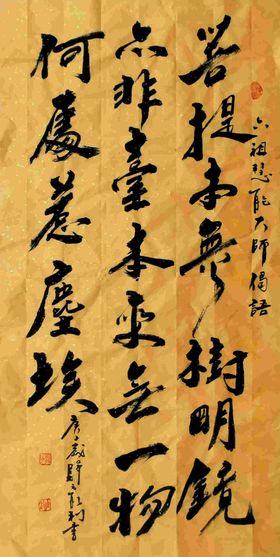 六祖慧能大師偈語
菩提本無樹明鏡
亦非臺本來無一物
何處惹塵埃